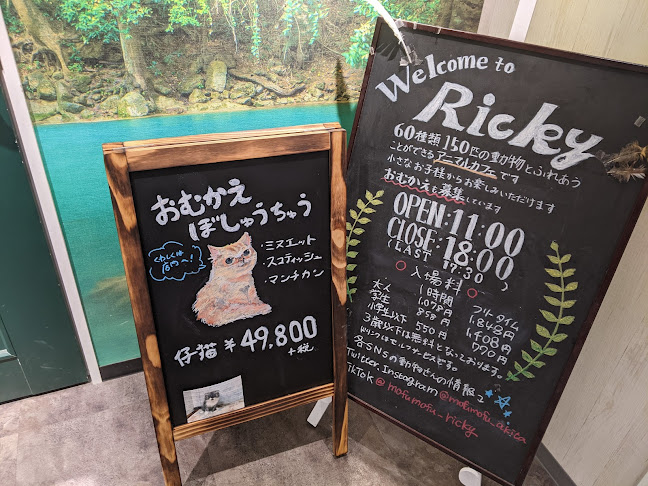 おむかえ
ぼしゅうちゅう
くわしくは
店内へ!
・ミヌエット
・スコティッシュ
・マンチカン
仔猫 ¥49,800
+税
Welcome to
Ricky
60種類150匹の動物とふれあう
ことができるアニマルカフェです
小さなお子様からお楽しみいただけます
おむかえも募集しています
OPEN:11:00
CLOSE:18:00
(LAST 17:30)
○入場料○
1時間 フリータイム
大人 1,078円 1,848円
学生 858円 1,408円
小学生以下 550円 990円
3歳以下は無料となっております。
ソフトドリンクはセルフサービスです
各SNSの動物さんの情報♪
Twitter Instagram @mofumofu_akiba
TikTok @mofumofu_ricky